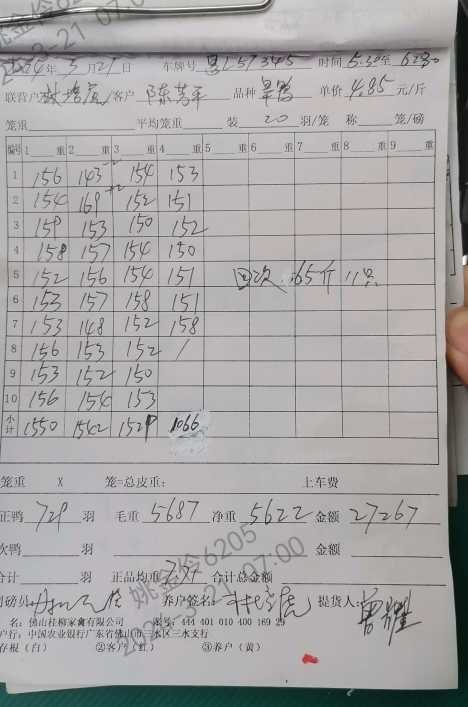 2024年 3月21日 车牌号 粤L57345 时间 5:30至 6:30
联营户 /客户 陈芳平 品种 单价 4.85 元/斤
笼重 平均笼重 装 20 羽/笼 称 笼/磅
编号 1 重 2 重 3 重 4 重 5 重 6 重 7 重 8 重 9 重
1 156 143 -2 154 153
2 154 169 +2 152 151
3 159 153 150 152
4 158 157 154 150
5 152 156 154 151 回次 65斤 11只
6 153 157 158 151
7 153 148 152 158
8 156 153 152 /
9 153 152 150
10 156 154 153
小计 1550 1542 1529 1066
笼重 X 笼=总皮重: 上车费
正鸭 729 羽 毛重 5687 净重 5622 金额 27267
次鸭 羽 金额
合计 羽 正品均重 合计总金额
司磅员 养户签名: 提货人: 曾耀
名:佛山桂柳家禽有限公司 账号:444 401 010 400 169 29
户行:中国农业银行广东省佛山市三水区三水支行
存根(白) ②客户(红) ③养户(黄)
姚金伶6205
2024-3-21 07:00
姚金伶6205
3-21 07:00